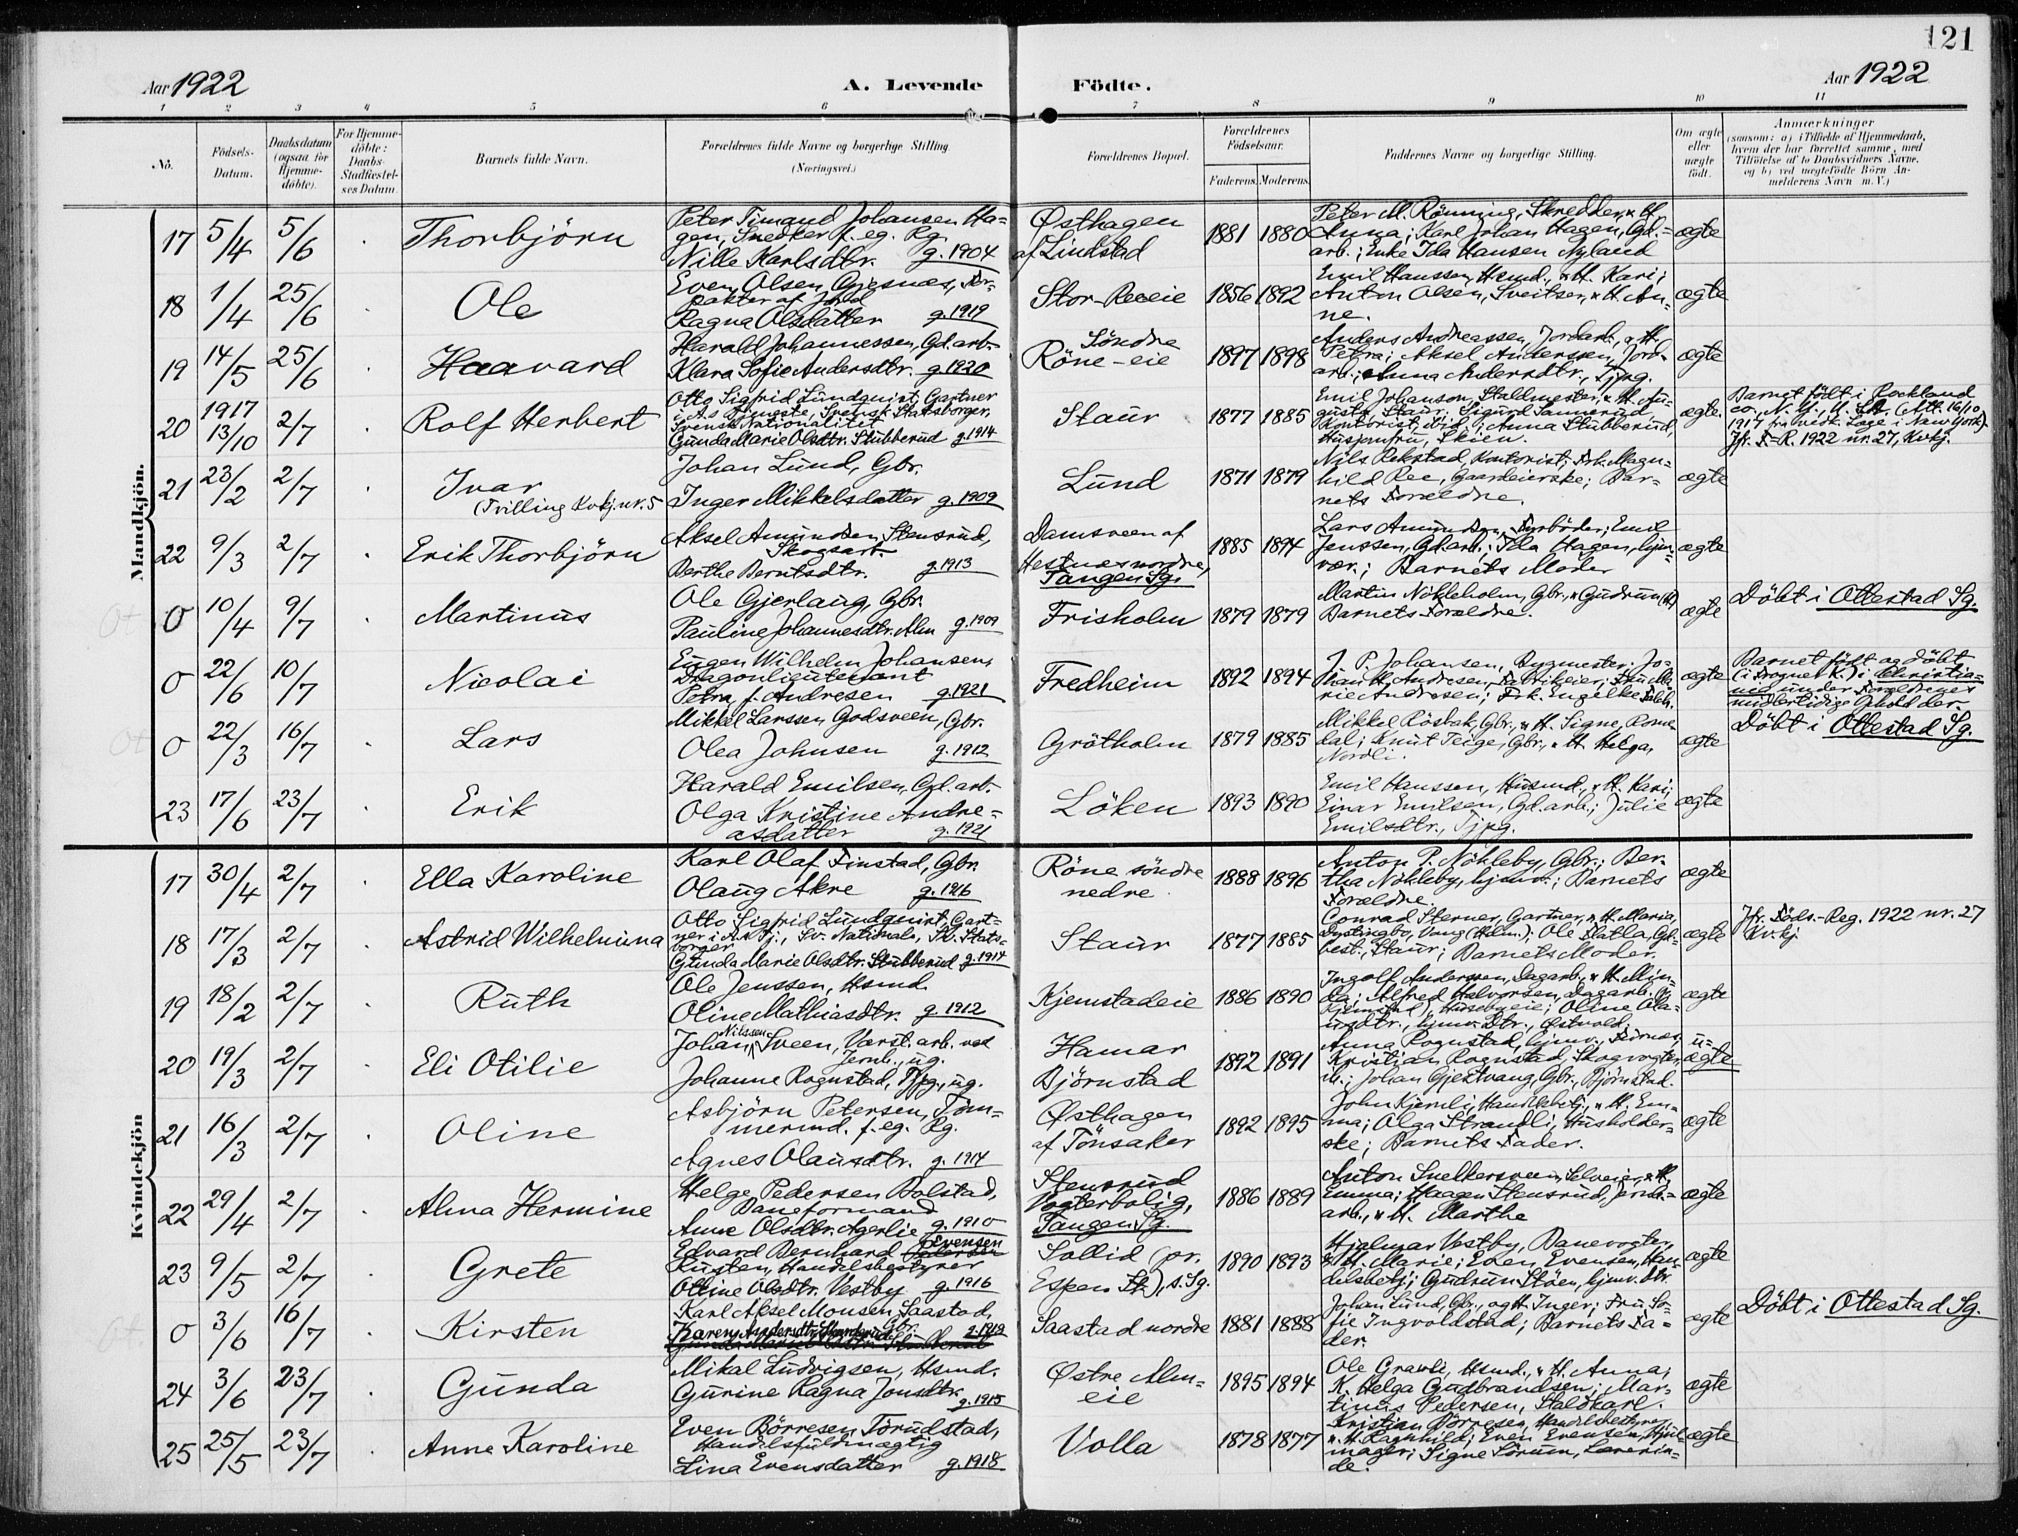 121
Aar 1922
A. Levende
Födte.
Aar 1922
1 2 3 4 5 6 7 8 9 10 11
No.
Födsels-
Datum.
Daabsdatum
(ogsaa for
Hjemme-
döbte).
For Hjemme-
döbte:
Daabs-
Stadfæstel-
ses Datum
Barnets fulde Navn.
Forældrenes fulde Navne og borgerlige Stilling
(Næringsvei.)
Forældrenes Bopæl.
Forældrenes
Födselsaar.
Faderens.
Moderens.
Faddernes Navne og borgerlige Stilling.
Om ægte
eller
uægte
födt.
Anmærkninger
(saasom: a) i Tilfælde af Hjemmedaab,
hvem der har forrettet samme, med
Tilföielse af to Daabsvidners Navne.
og b) ved uægtefödte Börn An-
melderens Navn m. V.)
Mandkjön.
17 5/4 5/6 Thorbjörn
Peter Timand Johansen Ha-
gen, Snedker f. eg. Rg.
Nille Karlsdtr. g. 1904
Østhagen
af Lindstad
1881 1880
Peter M. Rönning, Skredder, & H.
Anna; Karl Johan Hagen, Gd.-
arb.; Enke Ida Hansen Nyland
ægte
18 1/4 25/6 Ole
Even Olsen Gjesnæs, For-
pakter af Jord
Ragna Olsdatter g. 1919
Stor-Reeie
1856 1892
Emil Hanssen, Hsmd., & H. Kari;
Anton Olsen, Sveitser, & H. An-
ne.
ægte
19 14/5 25/6 Haavard
Harald Johannessen, Gd.arb.
Klara Sofie Andersdtr. g. 1920
Söndre
Röne-eie
1897 1898
Anders Andreassen, Jordarb., & H.
Petra; Aksel Anderssen, Jord-
arb.; Anna Andersdtr., Tjpg.
ægte
20 1917 13/10 2/7 Rolf Herbert
Otto Sigfrid Lundquist, Gartner
i A.s Tjeneste, Svensk Statsborger,
Svensk Nationalitet
Gunda Marie Olsdtr. Stubberud g. 1914
Staur
1877 1885
Emil Johanson, Staldmester, & H. Au-
gusta, Staur; Sigurd Sannerud,
Kontorist, ibid.; Anna Stubberud,
Husjomfru, Skien.
ægte.
Barnet födt i Rockland
co., N. Y., U. S. A. (Att. 16/10
1917 fra vedk. Læge i New York).
Jfr. F.-R. 1922 nr. 27, Kvkj.
21 23/2 2/7 Ivar
(Tvilling Kvkj. nr. 5
Johan Lund, Gbr.
Inger Mikkelsdatter g. 1909
Lund
1871 1879
Nils Rekstad, Kontorist; Frk. Magn-
hild Ree, Gaardeierske; Bar-
nets Forældre.
ægte
22 9/3 2/7 Erik Thorbjörn
Aksel Amundsen Stensrud,
Skogsarb.
Berthe Berntsdtr. g. 1913
Damsveen af
Hestnæs nordre,
Tangen Sg.
1885 1894
Lars Amundsen, Fyrböder; Emil
Jenssen, Gd.arb.; Ida Hagen, hjem-
vær.; Barnets Moder
ægte
0 10/4 9/7 Martinus
Ole Gjerlaug, Gbr.
Pauline Johannesdtr. Alm g. 1909
Frisholm
1879 1879
Martin Nökleholm, Gbr., & Gudrun (H.)
Barnets Forældre.
ægte
Döbt i Ottestad Sg.
0 22/6 10/7 Nicolai
Eugen Wilhelm Johansen,
Dragonlieutenant
Petra f. Andresen g. 1921
Fredheim
1892 1894
J. P. Johansen, Bygmester; Jo-
han H. Andresen, Fabrikeier; Fru Ma-
rie Andresen; Frk. Engelke
ægte
Barnet födt og döbt
(i Frogner K.) i Christia-
nia under Forældrenes
midlertidige Ophold der.
0 22/3 16/7 Lars
Mikkel Larssen Godsveen, Gbr.
Olea Johnsen g. 1912
Grötholm
1879 1885
Mikkel Rösbak, Gbr., & H. Signe, Rome-
dal; Knut Teige, Gbr., & H. Helga,
Nordli.
ægte
Döbt i Ottestad Sg.
23 17/6 23/7 Erik
Harald Emilsen, Gd.arb.
Olga Kristine Andre-
asdatter g. 1921
Löken
1893 1890
Emil Hanssen, Husmd., & H. Kari;
Einar Emilsen, Gd.arb.; Julie
Emilsdtr., Tjpg.
ægte
Kvindekjön
17 30/4 2/7 Ella Karoline
Karl Olaf Finstad, Gbr.
Olaug Akre g. 1916
Röne söndre
nedre
1888 1896
Anton P. Nökleby, Gbr.; Ber-
tha Nökleby, hjemv.; Barnets
Forældre
ægte
18 17/3 2/7 Astrid Wilhelmina
Otto Sigfrid Lundquist, Gart-
ner i A.s Tj., Sv. Nationals, Sv. Stats-
borger
Gunda Marie Olsdtr. Stubberud g. 1914
Staur
1877 1885
Conrad Sterner, Gartner, & H. Maria,
Dystingbo, Vang (Hdm.); Ole Flatla, Gd.-
best., Staur; Barnets Moder.
ægte
Jfr. Föds.-Reg. 1922 nr. 27
Kvkj.
19 18/2 2/7 Ruth
Ole Jenssen, Hsmd.
Oline Mathiasdtr. g. 1912
Kjemstadeie
1886 1890
Ingolf Anderssen, Dagarb., & H. Min-
da; Alfred Halvorsen, Dagarb.
Husebyeie; Oline Ola-
usdtr., hjemv. Dtr., Østvold.
ægte
20 19/3 2/7 Eli Otilie
Johan Nilssen Sveen, Værst. arb. ved
Jernb., ug.
Johanne Rognstad, Tjpg., ug.
Hamar
Björnstad
1892 1891
Anna Rognstad, hjemv., Furnes;
Kristian Rognstad, Skogvogter,
ib.; Johan Gjestvang, Gbr., Björnstad.
u-
ægte
21 16/3 2/7 Oline
Asbjörn Petersen, Töm-
mermd. f. eg. Rg.
Agnes Olausdtr. g. 1914
Østhagen
af Tönsaker
1892 1895
John Kjemli, Handelsbetj., & H. Em-
ma; Olga Strandli, Husholder-
ske; Barnets Fader.
ægte
22 29/4 2/7 Alma Hermine
Helge Pedersen Bolstad,
Baneformand
Anne Olsdtr. Agerlie g. 1910
Stensrud
Vogterbolig,
Tangen Sg.
1886 1889
Anton Snekkersveen, Selveier, & H.
Emma; Haagen Stensrud, jernb.-
arb., & H. Marthe
ægte
23 9/5 2/7 Grete
Evensen
Edvard Bernhard Pedersen
Rusten, Handelsbestyrer
Otline Olsdtr. Vestby g. 1916
Sollid (pr.
Espen St.), s. Sg.
1890 1893
Hjalmar Vestby, Banevogter,
& H. Marie; Even Evensen, Han-
delsbetj.; Gudrun Stöen, hjemv. Dtr.
ægte
0 3/6 16/7 Kirsten
Karl Aksel Monsen Saastad,
Gbr.
Karen Andersdtr. g. 1919
Saastad nordre
1881 1888
Johan Lund, Gbr., og H. Inger; Fru So-
fie Ingvoldstad; Barnets Fa-
der.
ægte
Döbt i Ottestad Sg.
24 3/6 23/7 Gunda
Mikal Ludvigsen, Hsmd.
Gurine Ragna Jonsdtr. g. 1915
Østre Alm-
eie
1895 1894
Ole Gravli, Hsmd., & H. Anna;
K. Helga Gudbrandsen; Mar-
tinus Pedersen, Staldkarl.
ægte
25 25/5 23/7 Anne Karoline
Even Börresen Torudstad,
Handelsfuldmægtig
Lina Evensdatter g. 1918
Volla
1878 1877
Kristian Börresen, Handelsbestyrer,
& H. Ragnhild; Even Evensen, Hjul-
mager; Signe Sörum, Lærerin-
de.
ægte